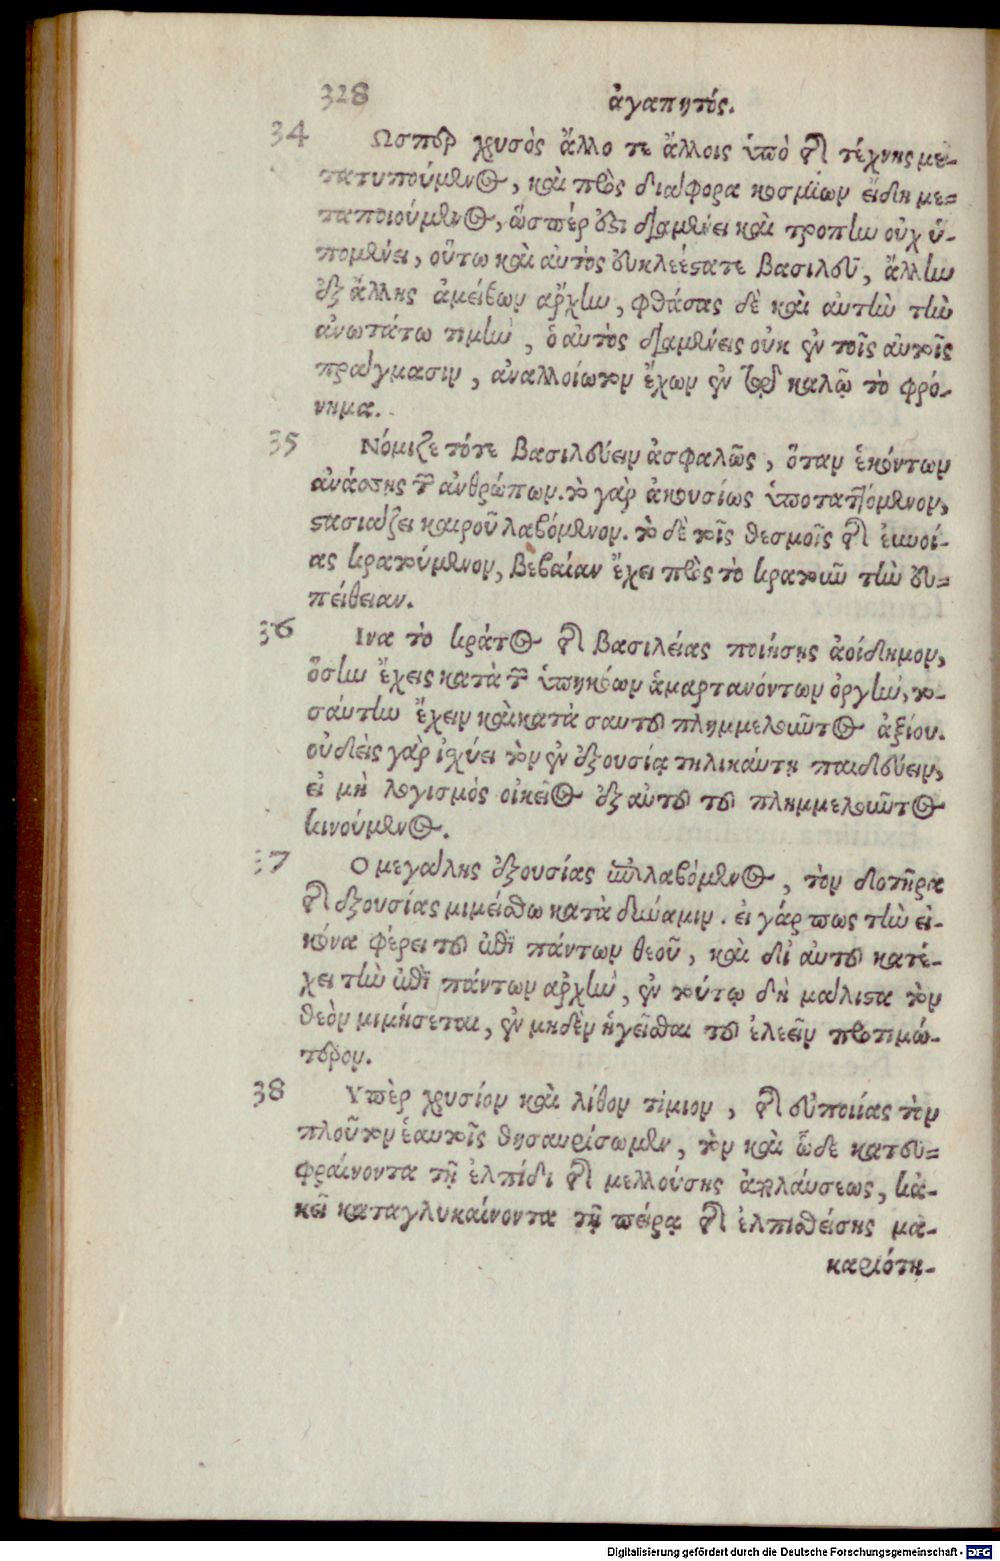 328
ἀγαπητός.
34 Ωσπερ χρυσὸς ἄλλο τε ἄλλοις ὑπὸ τῆς τέχνης με-
τατυπούμενος, καὶ πρὸς διάφορα κοσμίων εἴδη με-
ταποιούμενος, ὥσπέρ ἐστι διαμένει καὶ τροπὴν οὐχ ὑ-
πομένει, οὕτω καὶ αὐτὸς εὐκλεέστατε βασιλεῦ, ἄλλην
ἐξ ἄλλης ἀμείβων ἀρχὴν, φθάσας δὲ καὶ αὐτὴν τὴν
ἀνωτάτω τιμὴν, ὁ αὐτὸς διαμένεις οὐκ ἐν τοῖς αὐτοῖς
πράγμασιν, ἀναλλοίωτον ἔχων ἐν τῷ καλῷ τὸ φρό-
νημα.
35 Νόμιζε τότε βασιλεύειν ἀσφαλῶς, ὅταν ἑκόντων
ἀνάσσης τῶν ἀνθρώπων. τὸ γὰρ ἀκουσίως ὑποταττόμενον,
στασιάζει καιροῦ λαβόμενον. τὸ δὲ τοῖς θεσμοῖς τῆς εὐνοί-
ας κρατούμενον, βεβαίαν ἔχει πρὸς τὸ κρατοῦν τὴν εὐ-
πείθειαν.
36 Ινα τὸ κράτος τῆς βασιλείας ποιήσῃς ἀοίδημον,
ὅσην ἔχεις κατὰ τῶν ὑπηκόων ἁμαρτανόντων ὀργὴν, το-
σαύτην ἔχειν καὶ κατὰ σαυτοῦ πλημμελοῦντος ἀξίου.
οὐδεὶς γὰρ ἰσχύει τὸν ἐν ἐξουσίᾳ τηλικάυτῃ παιδεύειν,
εἰ μὴ λογισμὸς οἰκεῖος ἐξ αὐτοῦ τοῦ πλημμελοῦντος
κινούμενος.
37 Ο μεγάλης ἐξουσίας ἐπιλαβόμενος, τὸν δοτῆρα
τῆς ἐξουσίας μιμείσθω κατὰ δύναμιν. εἰ γάρ πως τὴν εἰ-
κόνα φέρει τοῦ ἐπὶ πάντων θεοῦ, καὶ δι' αὐτοῦ κατέ-
χει τὴν ἐπὶ πάντων ἀρχὴν, ἐν τούτῳ δὴ μάλιστα τὸν
θεὸν μιμήσεται, ἐν μηδὲν ἡγεῖσθαι τοῦ ἐλεεῖν προτιμώ-
τερον.
38 Υπὲρ χρυσίον καὶ λίθον τίμιον, τῆς εὐποιίας τὸν
πλοῦτον ἑαυτοῖς θησαυρίσωμεν, τὸν καὶ ὧδε κατευ-
φραίνοντα τῇ ἐλπίδι τῆς μελλούσης ἀπολάυσεως, κα-
κεῖ καταγλυκαίνοντα τῇ πείρᾳ τῆς ἐλπισθείσης μα-
καριότη-
Digitalisierung gefördert durch die Deutsche Forschungsgemeinschaft - DFG